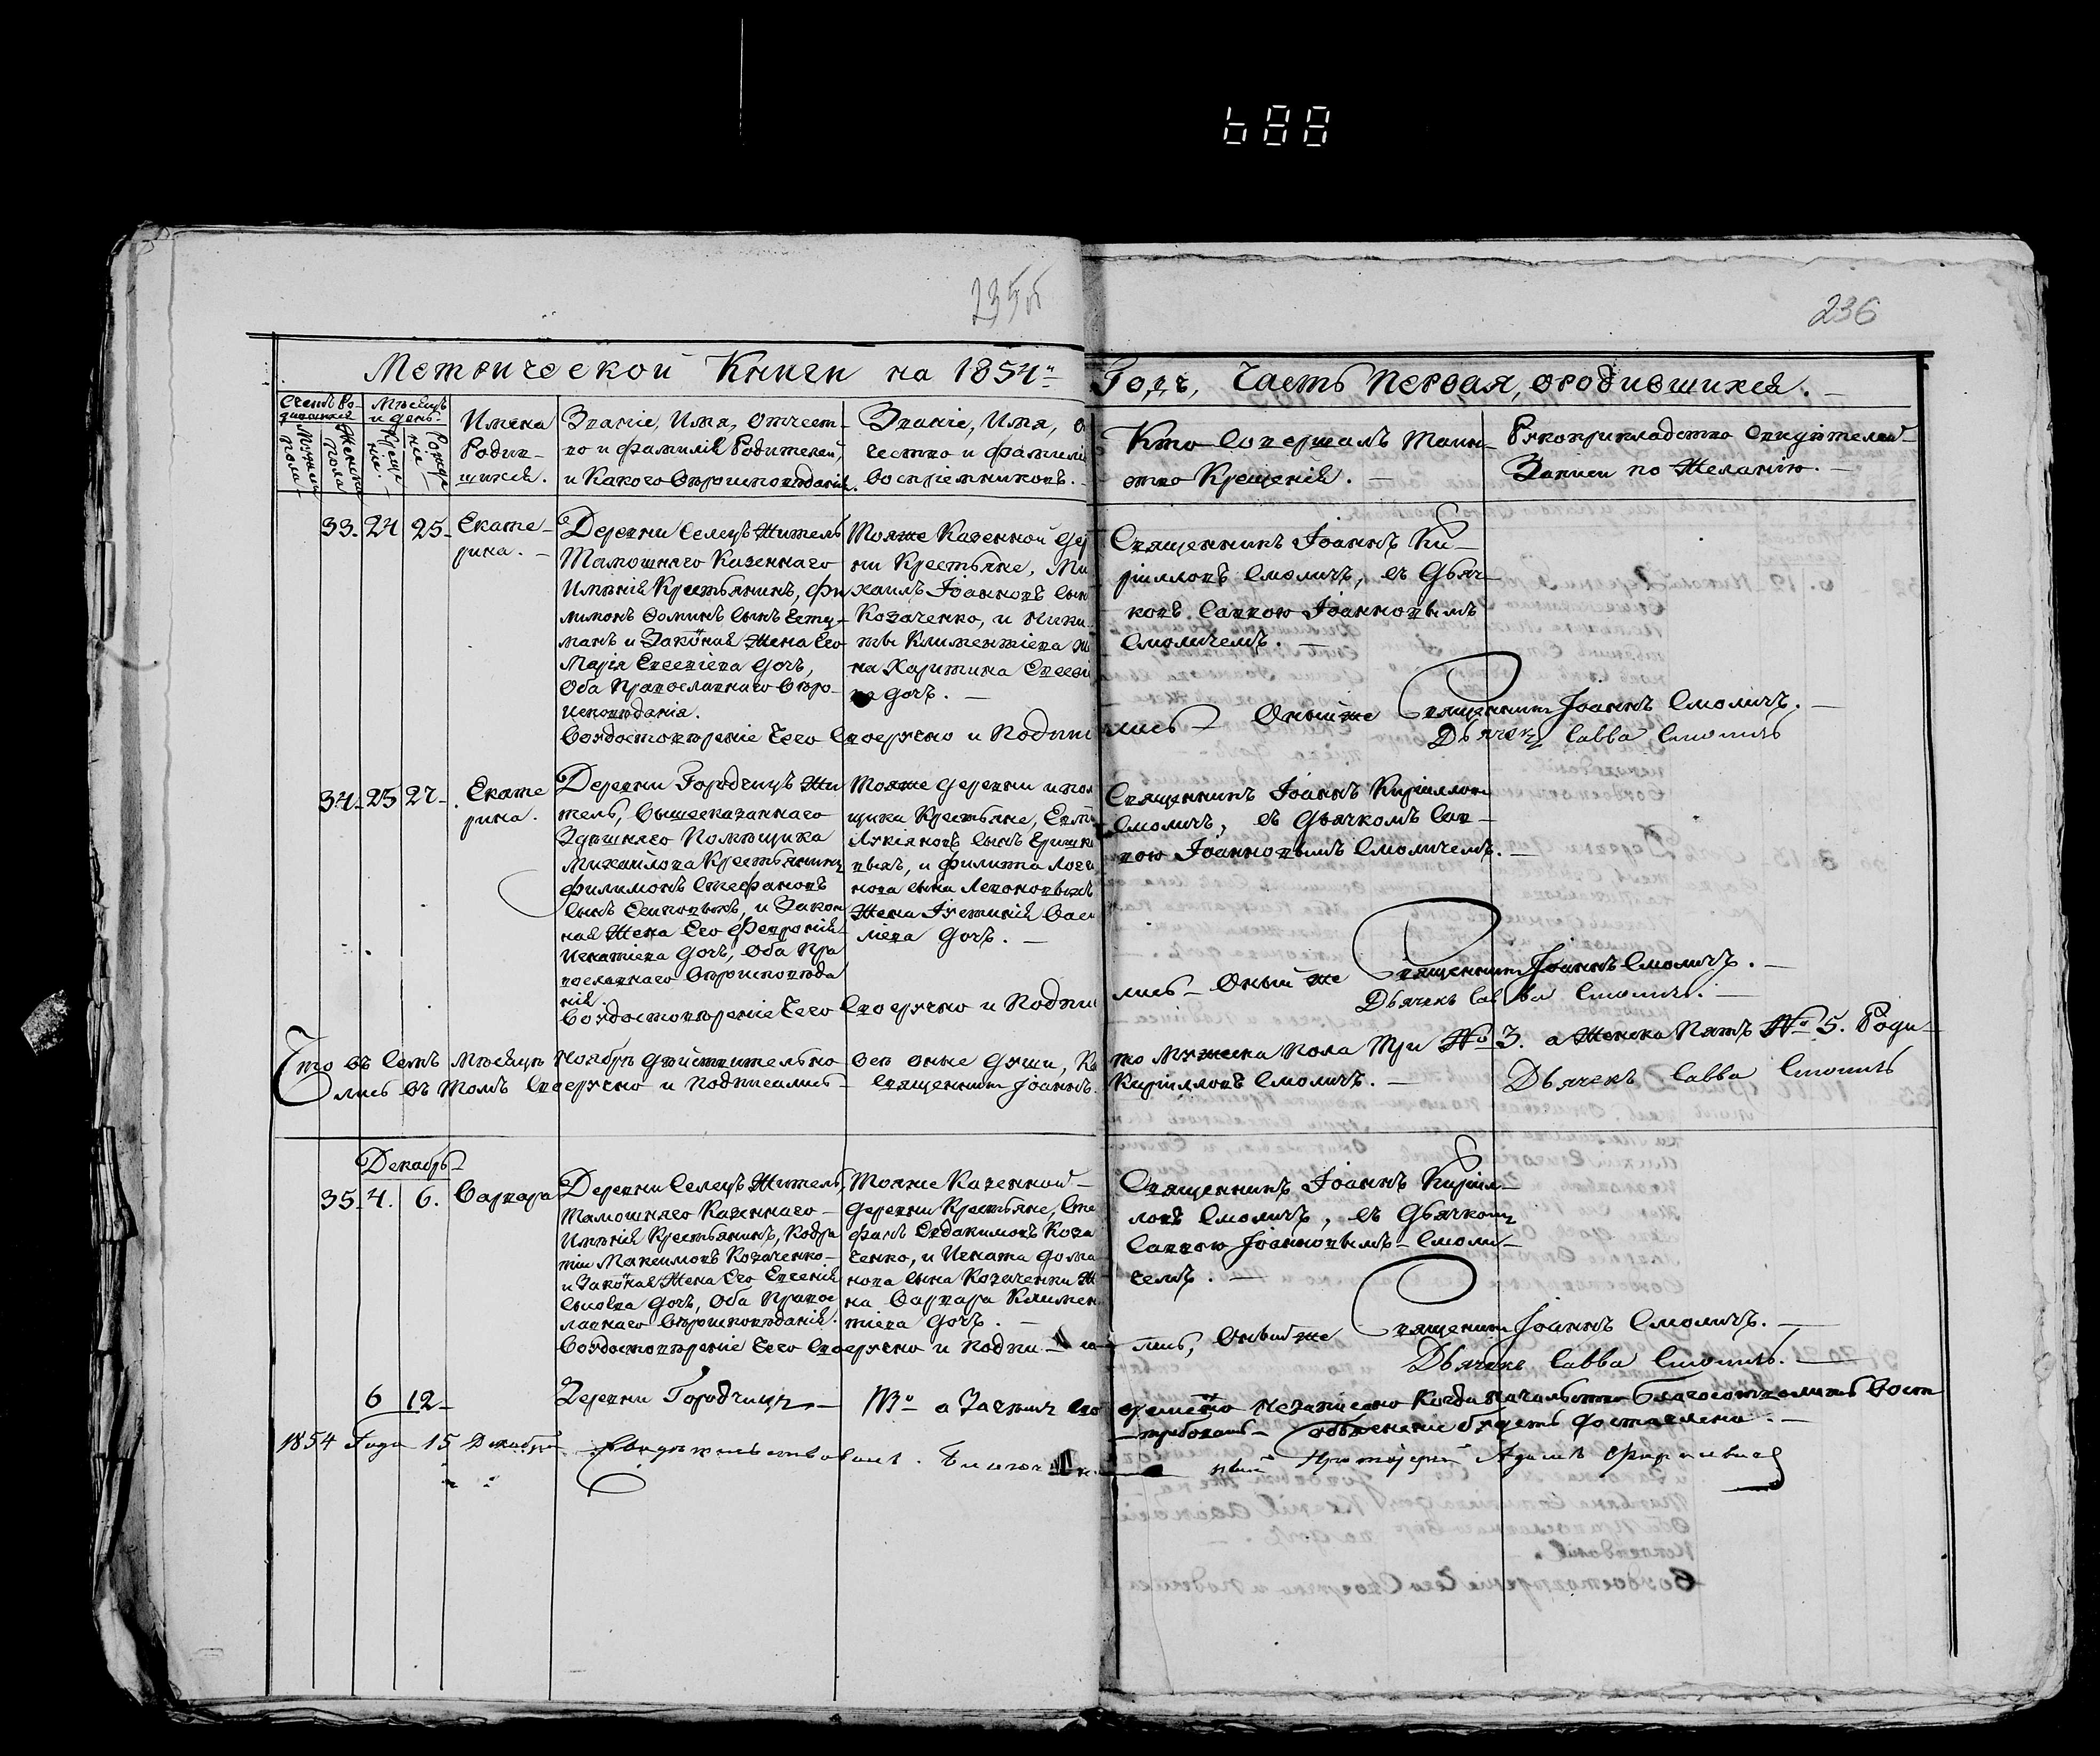 235об
236
Метрической Книги на 1854й Годъ, Часть Первая, ородившихся.
Счетъ Родившихся
Мужеска Пола
Женска Пола
Мѣсяцъ и день
Рождение
Крещение
Имена Родившихся.
Званіе, Имя, Отчество и Фамилія Родителей, и Какого Вѣроисповѣданія.
Званіе, Имя, О
чество и Фамилія
Воспріемниковъ.
Кто Совершалъ Таинство Крещенія.
Рукоприкладство Свидѣтелей Записи по Желанію.
33. 24 25
Екате-
рина.
Деревни Селецъ Житель
Тамошняго Казеннаго
Имѣнія Крестьянинъ, Фи
лимонъ Фоминъ Сынъ
манъ и Законая Жена Его
Марія Евсеніева дочь,
Оба Православнаго Вѣро-
исповѣданія.
Тояже Казенной дер
ни Крестьяне, Ми
хаилъ Іоанновъ Сын
Козаченко, и Ники
ты Климентіева Ж
на Харитина Евсеві
ва дочь.
Священникъ Іоаннъ Ки-
рилловъ Смоличъ, съ Дьяч-
комъ Саввою Іоанновымъ
Смоличемъ.
Воудостовѣреніе Чего Своеручно и Подпи
лись Оный же Священникъ Іоаннъ Смоличъ.
Дьячекъ Савва Смоличъ
34. 25 27
Екате
рина.
Деревни Городчицъ Жи
тель, Вышесказаннаго
Здѣшнего Помѣщика
Михайлова Крестьянинъ
Филимонъ Стефановъ
Сынъ и Закон
ная Жена Его Феврония
Игнатіева дочь, Оба Пра
вославнаго Вѣроисповѣда
нія.
Тояже деревни и пом
щика Крестьяне,
Лукіяновъ сынъ
и Филипа
нова сына
Жена Іустинія Васи
ліева дочь.
Священникъ Іоаннъ Кирилловъ
Смоличъ, съ Дьячкомъ Сав-
вою Іоанновымъ Смоличемъ.
Воудостовѣреніе Чего Своеручно и Подпи
лись Оный же Священникъ Іоаннъ Смоличъ.
Дьячекъ Савва Смоличъ.
Что въ Семъ Мѣсяцѣ Ноябрѣ дѣйствительно всѣ оные души, Ка
то Мужеска Пола Три № 3. а Женска Пять № 5. Роди-
лись въ Томъ Своеручно и Подписались Священникъ Іоаннъ
Кирилловъ Смоличъ. Дьячекъ Савва Смоличъ
Декабрь
35. 4. 6.
Варвара
Деревни Селецъ Житель,
Тамошняго Казеннаго
Имѣнія Крестьянинъ, Кодра
тій Максимовъ Козаченко
и Законая Жена Его Евгенія
дочь, Оба Право
славнаго Вѣроисповѣданія.
Тояже Казенной
деревни Крестьяне, Сте
фанъ Евдокимовъ Коза
ченко, и Игната Дома
нова сына Козаченки Ж
на Варвара Климен
тіева дочь.
Священникъ Іоаннъ Кирил-
ловъ Смоличъ, съ Дьячкомъ
Саввою Іоанновымъ Смоли-
чемъ.
Воудостовѣреніе Чего Своеручно и Подпи
лись, Оный же Священникъ Іоаннъ Смоличъ.
Дьячекъ Савва Смоличъ.
6 12
Деревни Городчицъ
а Зачѣмъ его
незаписано Когда началство благосоизволитъ Вост
требовать обясненіе будетъ доставлено.
1854 Года 15 Декабря Свидѣтельствовалъ Благочинный Протоіерей Адамъ